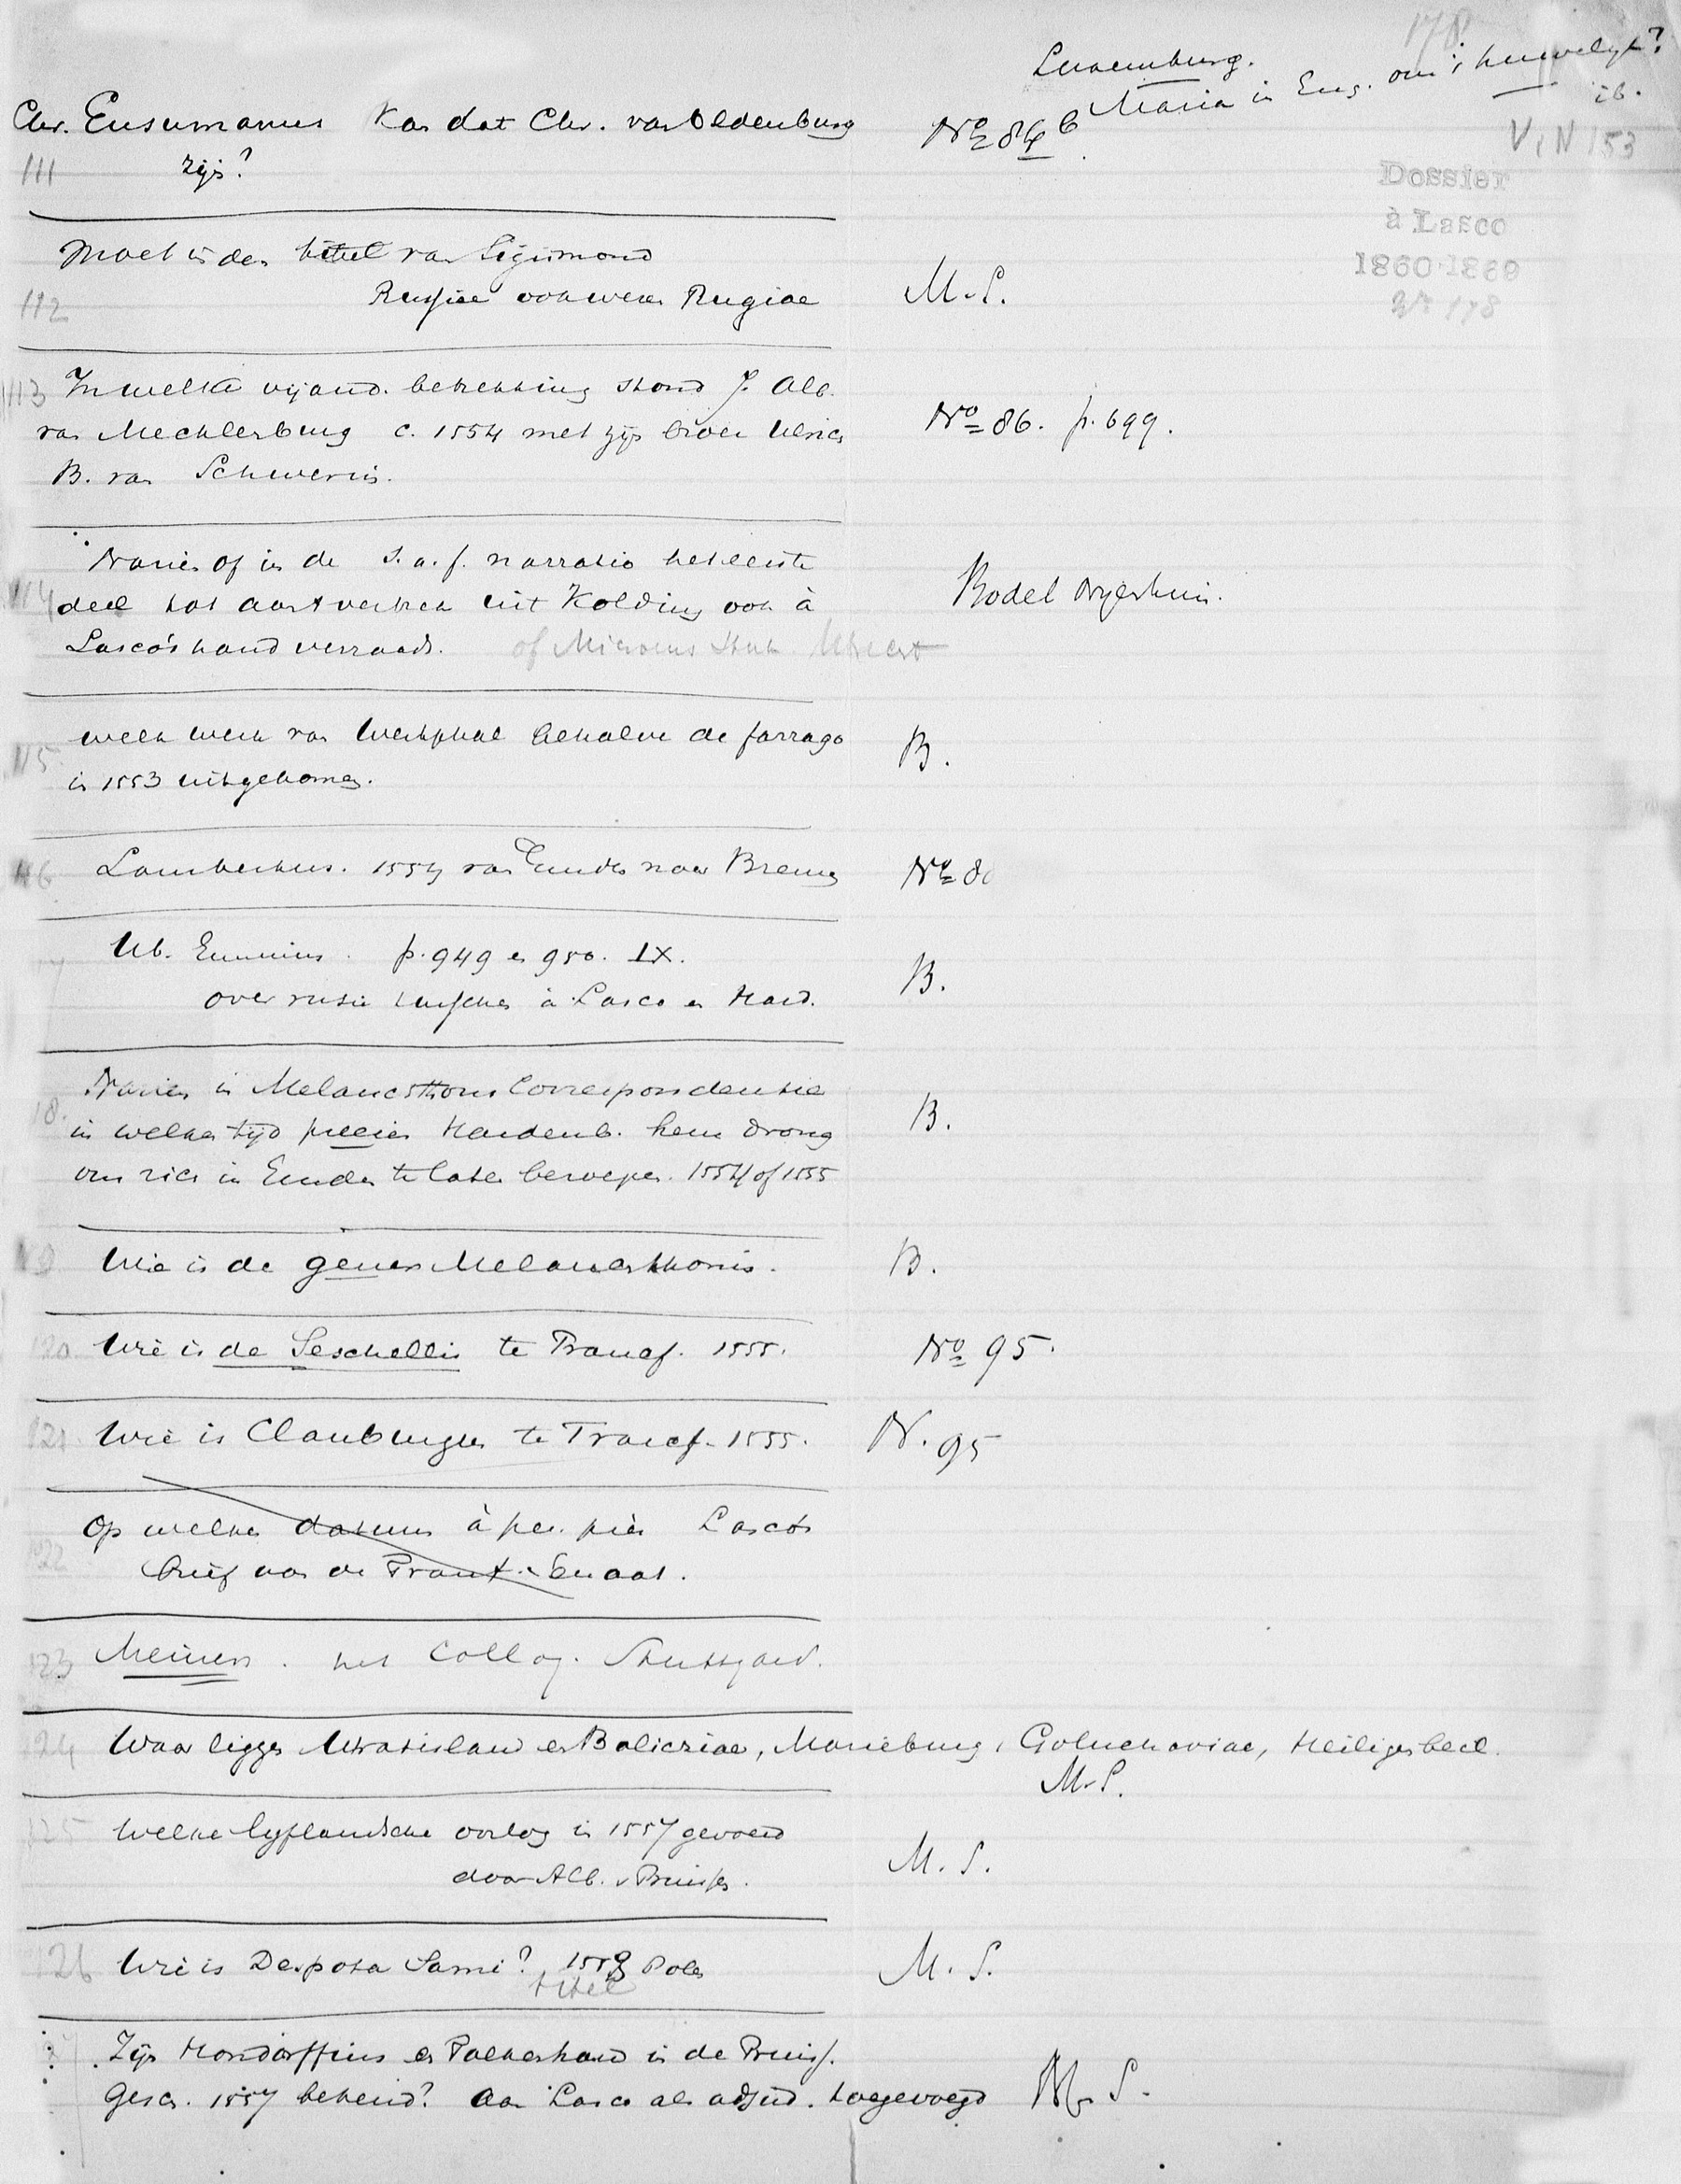 178
Luxemburg.
Maria in Eng. om 's huwelyk?
ib.
V, N 153
Dossier
à Lasco
1860-1869
No 178
Chr. Ensumanus Kan dat Chr. van Oldenburg No 84 b
111 zijn?
Moet in den titel van Sigismond
112 Russiae ook wezen Rugiae M. S.
113 In welke vijand. betrekking stond J. Alb.
van Mecklenburg c. 1554 met zijn broer Ulrich No 86. p. 699.
B. van Schwerin.
of in de s. a. f. narratio het eerste
114 deel tot aan 't vertrek uit Kolding ook à Bodel Nyenhuis.
Lasco's hand verraadt. of Micronius Utrecht
115 welk werk van Westphal behalve de farrago B.
in 1553 uitgekomen.
116 Lambertus. 1554 van Emden naar Bremen No 80
Ub. Emmius. p. 949 en 950. LX.
over ruzie tusschen à Lasco en Hard. B.
18. in Melancthons Correspondentie
in welken tijd precies Hardenb. hem drong B.
om zich in Emden te laten beroepen. 1554 of 1555
119 Wie is de gener Melancthonis. B.
120 Wie is de Seschellis te Francf. 1555. No 95.
121 Wie is Clauburger te Francf. 1555. N. 95
Op welken datum à Lasco's
122 brief aan de Frankf. Senaat.
123 Meiners. het Colloq. Stuttgard.
124 Waar liggen Wratislaw en Balicziae, Marieburg, Goluchoviae, Heiligenbeil.
M. S.
125 Welke lyflandsche oorlog in 1557 gevoerd
door Alb. v Pruissen. M. S.
126 Wie is Despota Sami? 1558 Polen M. S.
titel
127 Zijn Hondorffius en Packerhand in de Pruiss.
Gesch. 1557 bekend? Aan Lasco als adjud. toegevoegd M. S.